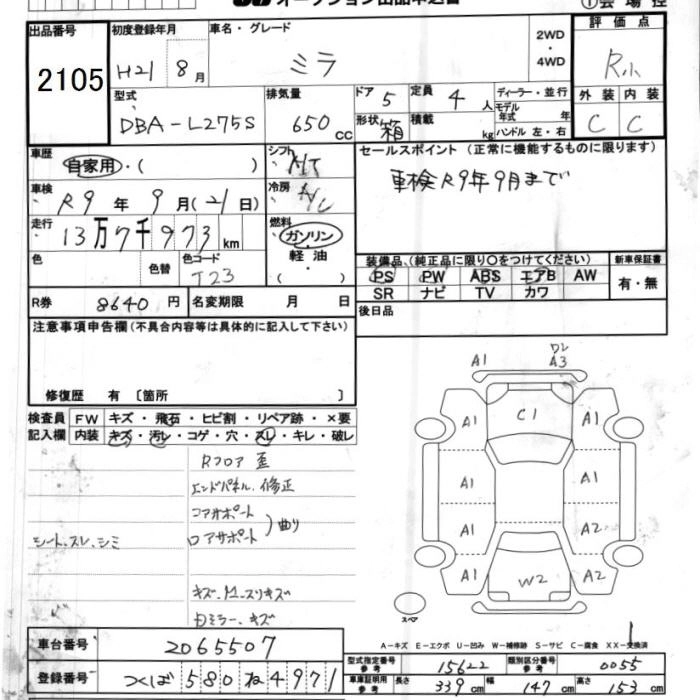 オークション出品申込書
出品番号 2105
初度登録年月 H21年 8月
車名・グレード ミラ
2WD・4WD
評価点 R小
型式 DBA-L275S
排気量 650cc
ドア 5 形状 箱
定員 4人 積載 kg
ディーラー・並行
モデル年式 年
ハンドル 左・右
外装 C 内装 C
車歴 自家用・( )
シフト
車検 R9年 9月(21日)
冷房 A/C
走行 13万7千973km
燃料 ガソリン・軽油・( )
色 色替 色コード T23
セールスポイント (正常に機能するものに限ります)
車検R9年9月まで
装備品 (純正品に限り○をつけてください)
PS PW ABS エアB AW
SR ナビ TV カワ
新車保証書 有・無
R券 8640円
名変期限 月 日
後日品
注意事項申告欄 (不具合内容等は具体的に記入して下さい)
修復歴 有 〔箇所 〕
検査員記入欄
FW キズ・飛石・ヒビ割・リペア跡・×要
内装 キズ・汚レ・コゲ・穴・スレ・キレ・破レ
Rフロア 歪
エンドパネル.修正
コアサポート
ロアサポート
曲り
シート.スレ.シミ
キズ.
ミラー.キズ
A1
A3
A1 C1 A1
A1 A1
A1 A2
A1 W2 A2
スペア
A－キズ E－エクボ U－凹み W－補修跡 S－サビ C－腐食 XX－交換済
車台番号 2065507
登録番号 つくば 580 ね 4971
型式指定番号 参考 15622
類別区分番号 参考 0055
車庫証明用 参考 長さ 339cm 幅 147cm 高さ 153cm